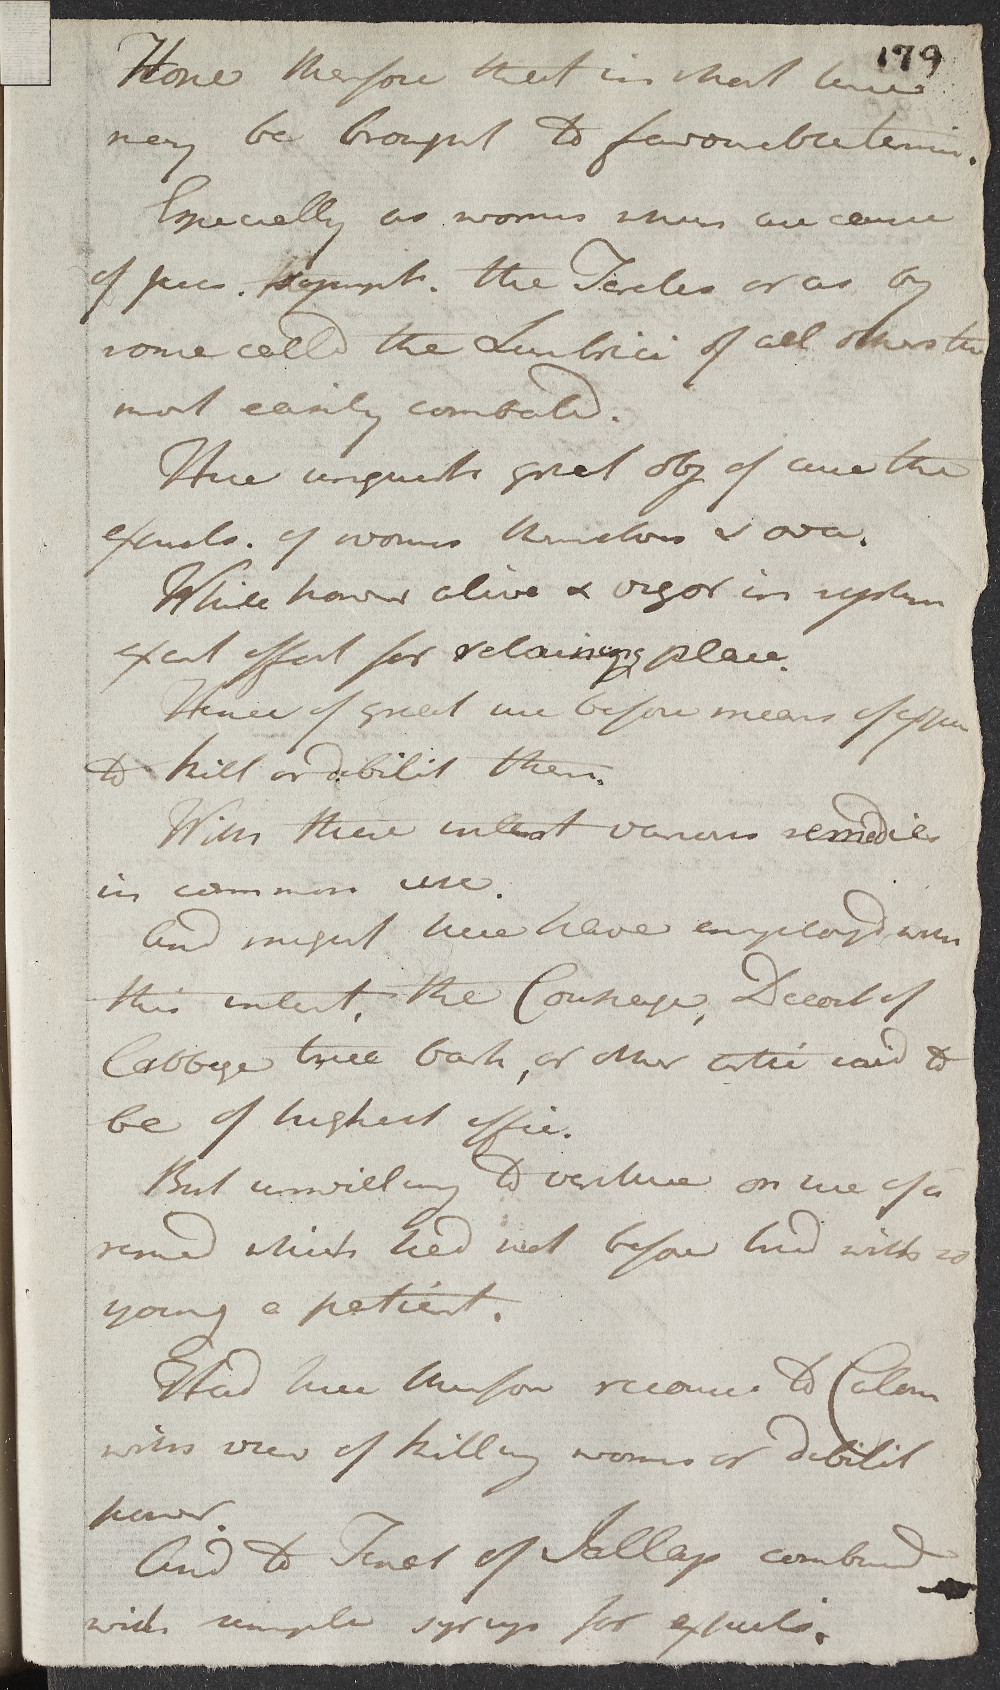 179
Hope therefore that in short time
may be brought to favourable termin.
Especially as worms when are cause
of prec. sympt. the Teretes or as by
some calld the Lumbrici of all others the
most easily combated.
Here unquest great obj of cure the
expuls. of worms themselves & ova.
While however alive & vigor in system
exert effort for retaining place.
Hence of great use before means of expu
to kill or debilit them.
With these intent various remedies
in common use.
And might here have employd with
this intent, the Couhage, Decoct of
Cabbage tree bark, or other artic said to
be of highest effic.
But unwilling to venture on use of a
remed which had not before tried with so
young a patient.
Had here therefore recourse to Calom
with view of killing worms or debilit
power.
And to Tinct of Jallap combined
with simple syrup for expuls.